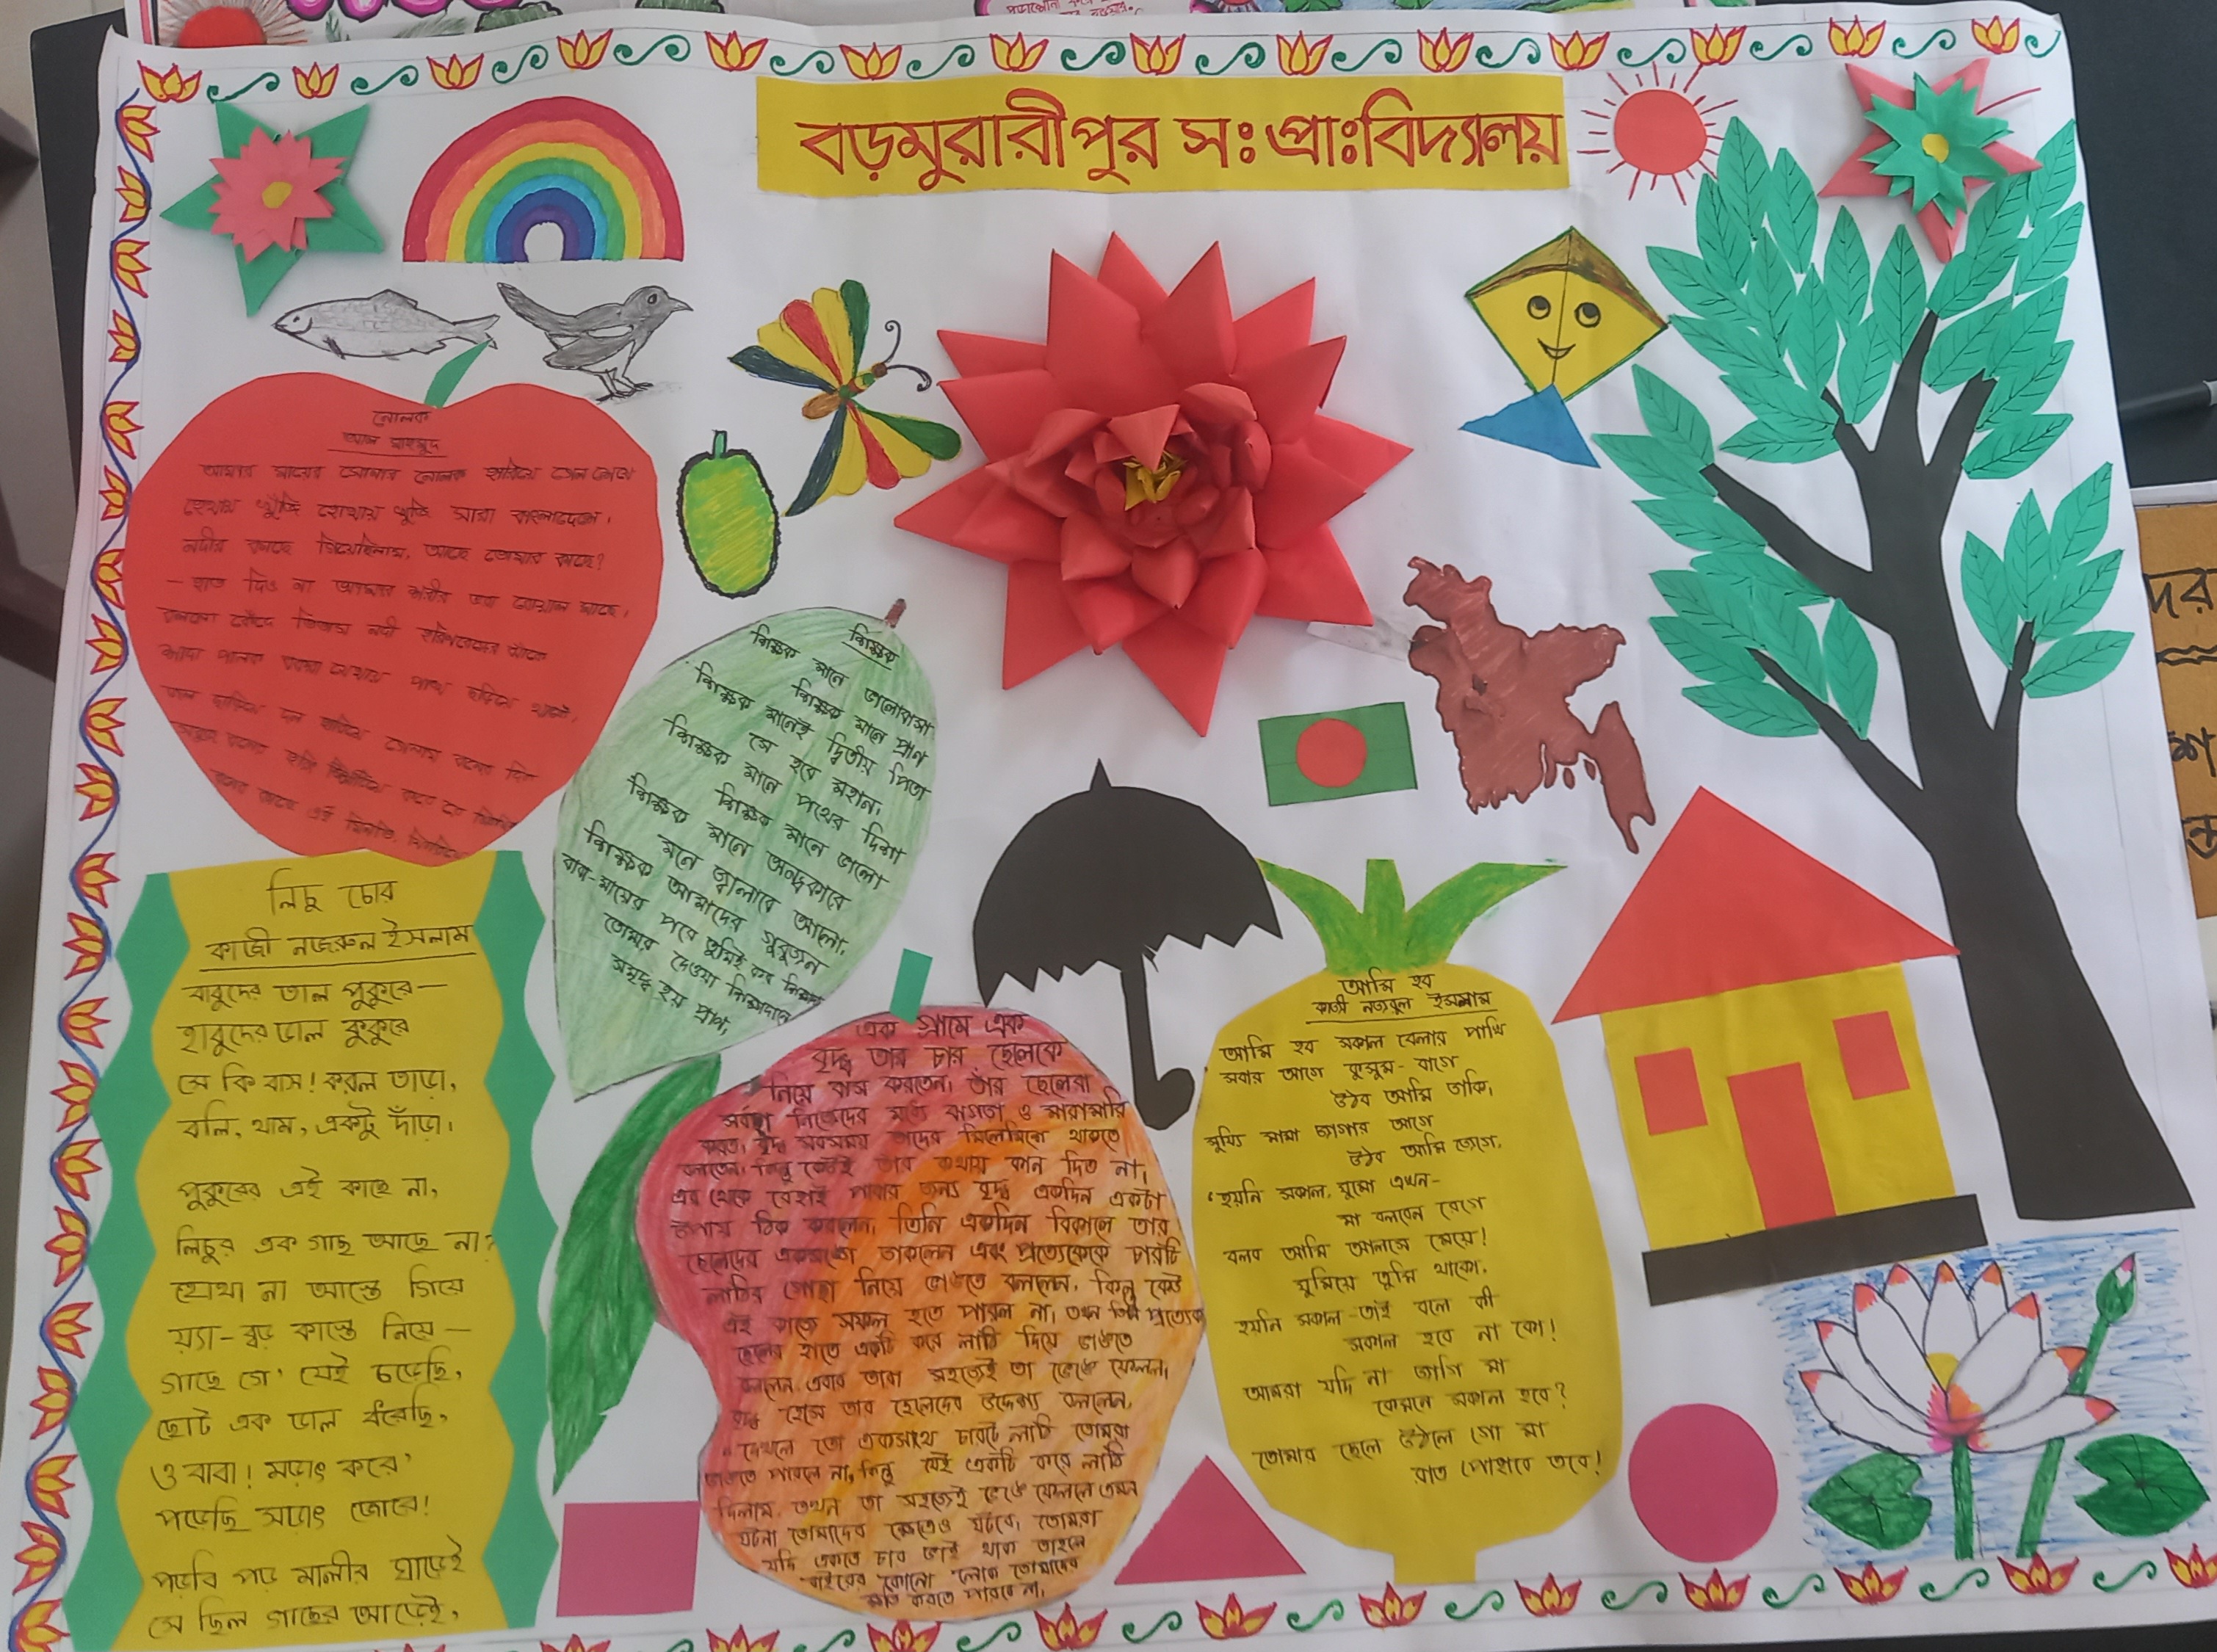 বড়মুরারীপুর সঃ প্রাঃ বিদ্যালয়
নোলক
আল মাহমুদ
আমার মায়ের সোনার নোলক হারিয়ে গেল শেষে
হেথায় খুঁজি হোথায় খুঁজি সারা বাংলাদেশে।
নদীর কাছে গিয়েছিলাম, আছে তোমার কাছে?
- হাত দিও না আমার শরীর ভরা বোয়াল মাছে।
বললো কেঁদে তিতাস নদী হরিণবেড়ের বাঁকে
সাদা পালক বকরা যেথায় পাখ ছড়িয়ে থাকে।
শিক্ষক
শিক্ষক মানে ভালোবাসা
শিক্ষক মানে প্রাণ
শিক্ষক মানেই দ্বিতীয় পিতা
সে হবে মহান।
শিক্ষক মানে পথের দিশা
শিক্ষক মানে ভালো
শিক্ষক মানে অন্ধকারে
মনে জ্বালাবে আলো।
শিক্ষক আমাদের গুরুজন
বাবা-মায়ের পরে তুমিই
তোমার দেওয়া শিক্ষাদানে
সমৃদ্ধ হয় প্রাণ,
লিচু চোর
কাজী নজরুল ইসলাম
বাবুদের তাল পুকুরে—
হাবুদের ডাল কুকুরে
সে কি বাস! করল তাড়া,
বলি, থাম, একটু দাঁড়া।
পুকুরের ঐই কাছে না,
লিচুর এক গাছ আছে না?
হোথা না আস্তে গিয়ে
য়্যা-ব্বড় কাস্তে নিয়ে—
গাছে গো' যেই চড়েছি,
ছোট এক ডাল ধরেছি,
ও বাবা! মড়াৎ করে'
পড়েছি সড়াৎ জোরে!
পড়বি পড় মালীর ঘাড়েই
সে ছিল গাছের আড়েই,
এক গ্রামে এক
বৃদ্ধ তার চার ছেলেকে
নিয়ে বাস করতেন। তাঁর ছেলেরা
সর্বদা নিজেদের মধ্যে ঝগড়া ও মারামারি
করত। বৃদ্ধ সবসময় তাদের মিলেমিশে থাকতে
বলতেন, কিন্তু কেউই তার কথায় কান দিত না।
এর থেকে রেহাই পাবার জন্য বৃদ্ধ একদিন একটা
উপায় ঠিক করলেন। তিনি একদিন বিকালে তার
ছেলেদের একসঙ্গে ডাকলেন এবং প্রত্যেককে চারটি
লাঠির গোছা নিয়ে ভাঙতে বললেন, কিন্তু কেউ
এই কাজে সফল হতে পারল না। তখন তিনি প্রত্যেক
ছেলের হাতে একটি করে লাঠি দিয়ে ভাঙতে
বললেন, এবার তারা সহজেই তা ভেঙে ফেলল।
বৃদ্ধ হেসে তার ছেলেদের উদ্দেশ্য বললেন,
"দেখলে তো একসাথে চারটে লাঠি তোমরা
ভাঙতে পারলে না, কিন্তু যেই একটি করে লাঠি
দিলাম, তখন তা সহজেই ভেঙে ফেললে এমন
ঘটনা তোমাদের ক্ষেত্রেও ঘটবে। তোমরা
যদি একতে চার ভাই থাক তাহলে
বাইরের কোনো লোক তোমাদের
ক্ষতি করতে পারবে না।
আমি হব
কাজী নজরুল ইসলাম
আমি হব সকাল বেলার পাখি
সবার আগে কুসুম-বাগে
উঠব আমি ডাকি।
সূয্যি মামা জাগার আগে
উঠব আমি জেগে,
'হয়নি সকাল, ঘুমো এখন-
মা বলবেন রেগে
বলব আমি আলসে মেয়ে!
ঘুমিয়ে তুমি থাকো,
হয়নি সকাল-তাই বলে কী
সকাল হবে না কো!
আমরা যদি না জাগি মা
কেমনে সকাল হবে?
তোমার ছেলে উঠলে গো মা
রাত পোহাবে তবে!